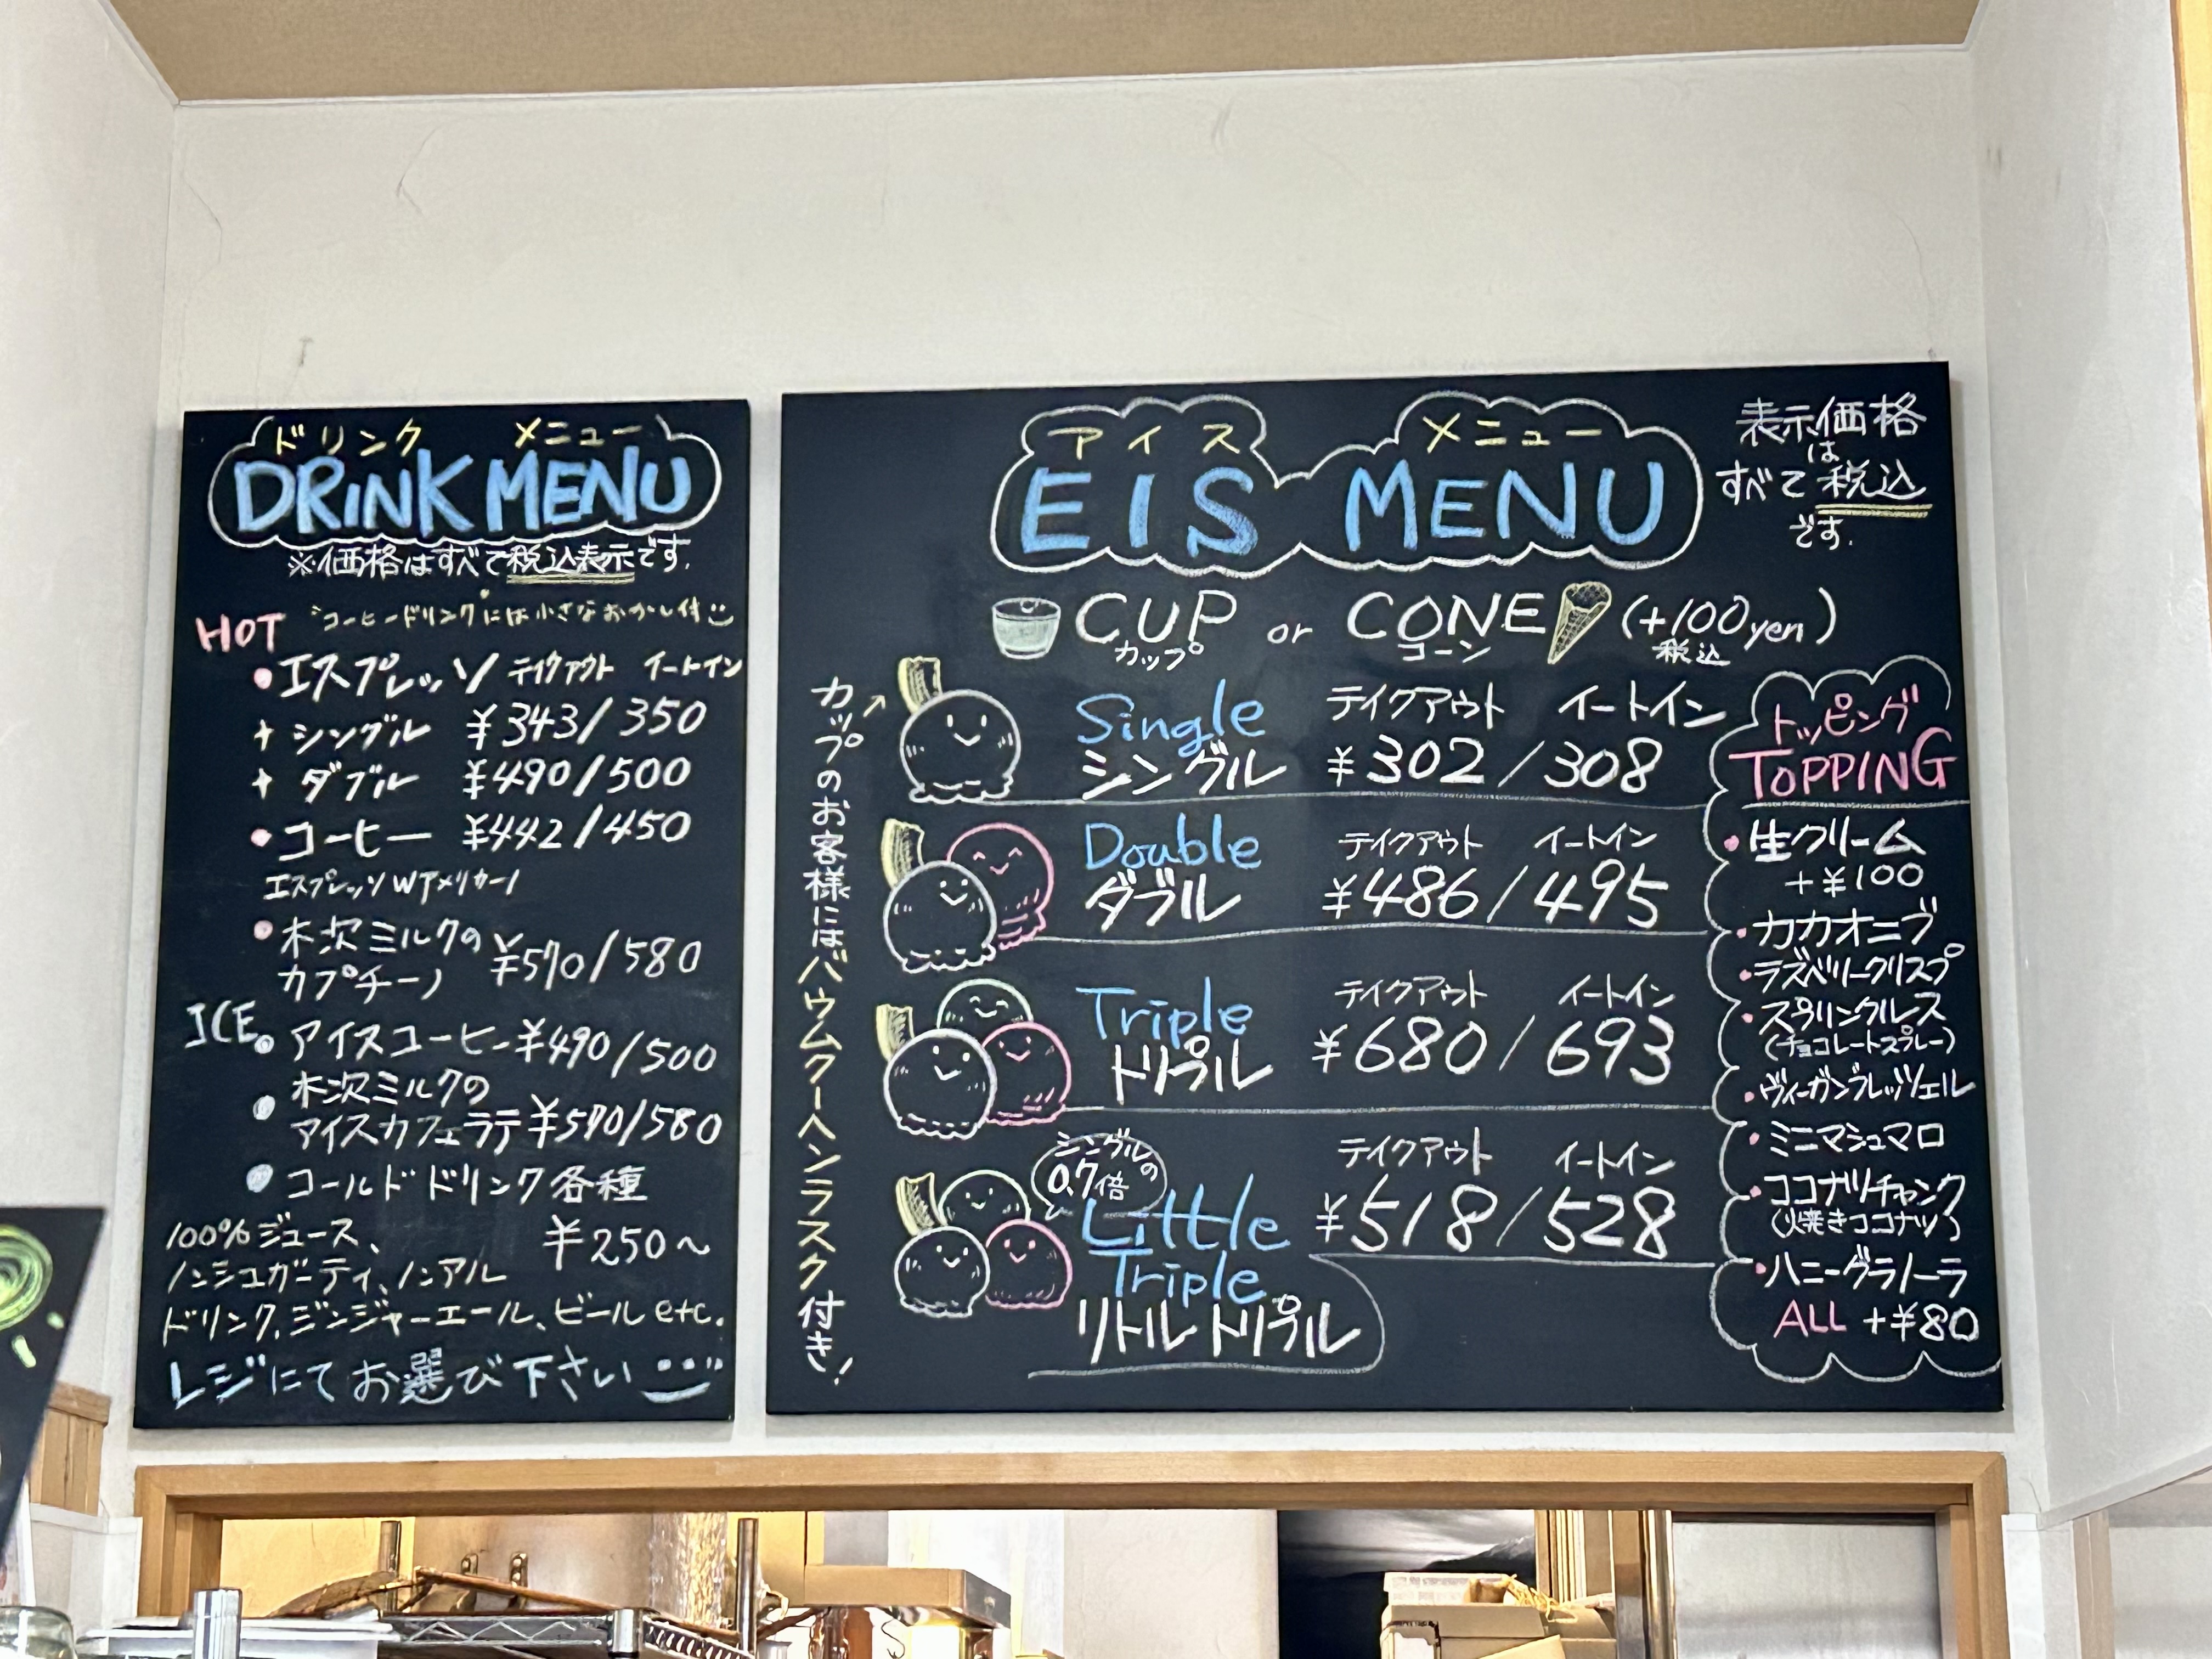 ドリンク メニュー
DRINK MENU
※価格はすべて税込表示です.
HOT "コーヒードリンク"には小さなおかし付
•エスプレッソ テイクアウト イートイン
+ シングル ¥343/350
+ ダブル ¥490/500
•コーヒー ¥442/450
エスプレッソWアメリカーノ
•木次ミルクの
カプチーノ ¥570/580
ICE
•アイスコーヒー ¥490/500
•木次ミルクの
アイスカフェラテ ¥570/580
•コールドドリンク各種
100%ジュース、 ¥250〜
ノンシュガーティ、ノンアル
ドリンク、ジンジャーエール、ビールetc.
レジにてお選び下さい
アイス メニュー
EIS MENU
表示価格
は
すべて税込
です.
CUP or CONE (+100yen)
カップ コーン 税込
カップのお客様にはバウムクーヘンラスク付き!
Single テイクアウト イートイン
シングル ¥302/308
Double テイクアウト イートイン
ダブル ¥486/495
Triple テイクアウト イートイン
トリプル ¥680/693
シングルの
0.7倍
Little テイクアウト イートイン
Triple ¥518/528
リトルトリプル
トッピング
TOPPING
•生クリーム
+¥100
•カカオニブ
•ラズベリークリスプ
•スプリンクルス
(チョコレートスプレー)
•ヴィーガンプレッツェル
•ミニマシュマロ
•ココナツチャンク
(焼きココナツ)
•ハニーグラノーラ
ALL +¥80